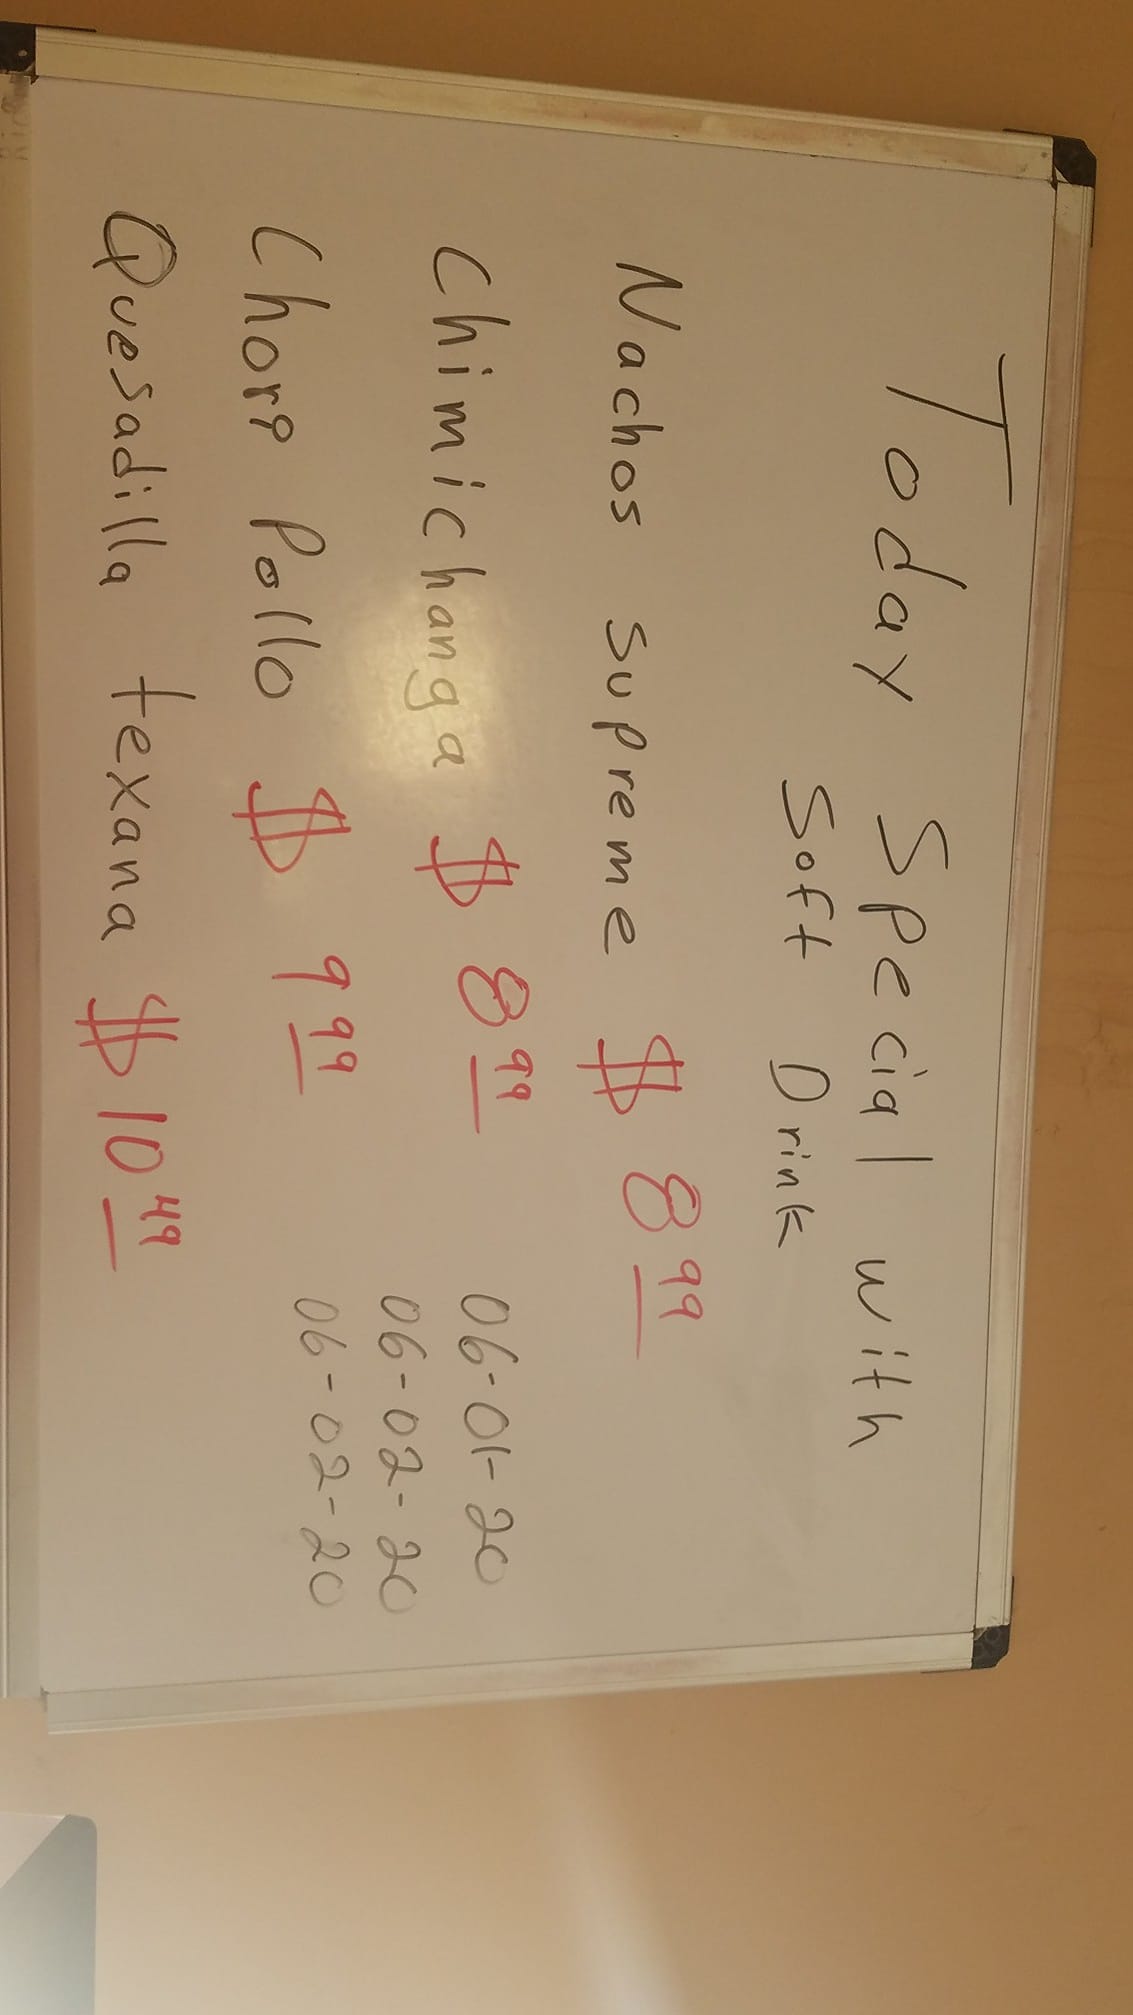 Today Special with
Soft Drink
Nachos supreme $ 8 99
Chimichanga $ 8 99
Chori Pollo $ 9 99
Quesadilla texana $ 10 49
06-01-20
06-02-20
06-02-20